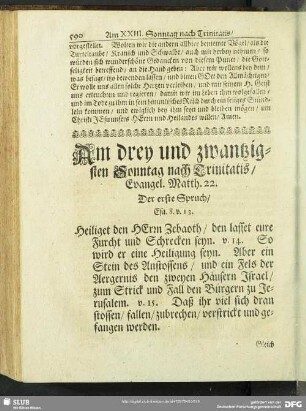 590 Am XXIII. Sonntag nach Trinitatis/
vorgestellet. Wolten wir die andern allhier benennte Vögel/ als die
Turteltaube/ Kranich und Schwalbe/ auch mit herbey nehmen/ so
würden sich wunderschöne Gedancken von diesem Punct/ die Gott-
seligkeit betreffend/ an die Hand geben: Aber wir wollens bey dem/
was besagt/ itzo bewenden lassen/ und bitten GOtt den Allmächtigen/
Er wolle uns allen solche Hertzen verleihen/ und mit seinem H. Geist
uns erleuchten und regieren/ damit wir im Leben ihm wolgefallen/
und im Tode zu ihm in sein himmlisches Reich durch ein seliges Stünd-
lein kommen/ und ewiglich bey ihm seyn und bleiben mögen/ um
Christi JEsu unsers HErrn und Heilandes willen/ Amen.
Am drey und zwantzig-
sten Sonntag nach Trinitatis/
Evangel. Matth. 22.
Der erste Spruch/
Esa. 8. v. 13.
Heiliget den HErrn Zebaoth/ den lasset eure
Furcht und Schrecken seyn. v. 14. So
wird er eine Heiligung seyn. Aber ein
Stein des Anstossens/ und ein Fels der
Aergernis den zweyen Häusern Israel/
zum Strick und Fall den Bürgern zu Je-
rusalem. v. 15. Daß ihr viel sich dran
stossen/ fallen/ zubrechen/ verstrickt und ge-
fangen werden.
Gleich
SLUB
DFG